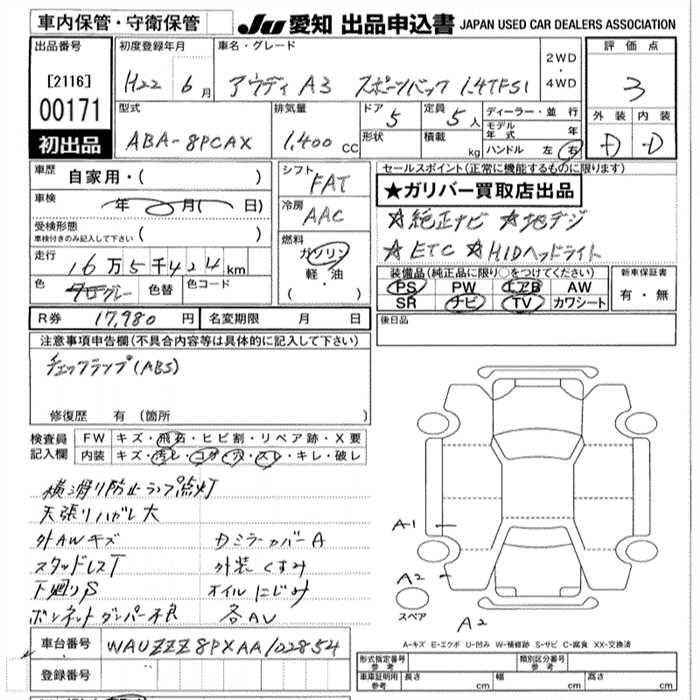 車内保管・守衛保管
JU 愛知 出品申込書 JAPAN USED CAR DEALERS ASSOCIATION
出品番号
[2116]
00171
初出品
初度登録年月
H22年 6月
車名・グレード
アウディ A3 スポーツバック 1.4TFSI
2WD
・
4WD
評価点
3
外装 内装
D D
型式
ABA-8PCAX
排気量
1,400 cc
ドア 5
形状
定員 5人
積載 kg
ディーラー・並行
モデル年式 年
ハンドル 左 右
車歴 自家用・( )
車検 年 月( 日)
受検形態 ( )
車検付きのみ記入して下さい
走行 16万5千424km
色 グレー 色替 色コード
シフト
FAT
冷房
AAC
燃料
ガソリン
軽・油
( ・ )
セールスポイント(正常に機能するものに限ります)
★ガリバー買取店出品
☆純正ナビ ☆地デジ
☆ETC ☆HIDヘッドライト
装備品(純正品に限り○をつけてください)
PS PW エアB AW
SR ナビ TV カワシート
新車保証書
有・無
R券 17,980円 名変期限 月 日
後日品
注意事項申告欄(不具合内容等は具体的に記入して下さい)
チェックランプ(ABS)
修復歴 有 (箇所 )
検査員記入欄
FW キズ・飛石・ヒビ割・リペア跡・X要
内装 キズ・汚レ・コゲ・穴・スレ・キレ・破レ
横滑り防止ランプ点灯
天張りハガレ大
外AWキズ ドミラーカバーA
スタッドレスT 外装くすみ
下廻りS オイルにじみ
ボンネットダンパー不良 各AU
A1
A2
スペア
A2
A-キズ E-エクボ U-凹み W-補修跡 S-サビ C-腐食 XX-交換済
車台番号 WAUZZZ8PXAA102854
登録番号
形式指定番号 参考
類別区分番号 参考
車庫証明用 参考 長さ cm 幅 cm 高さ cm